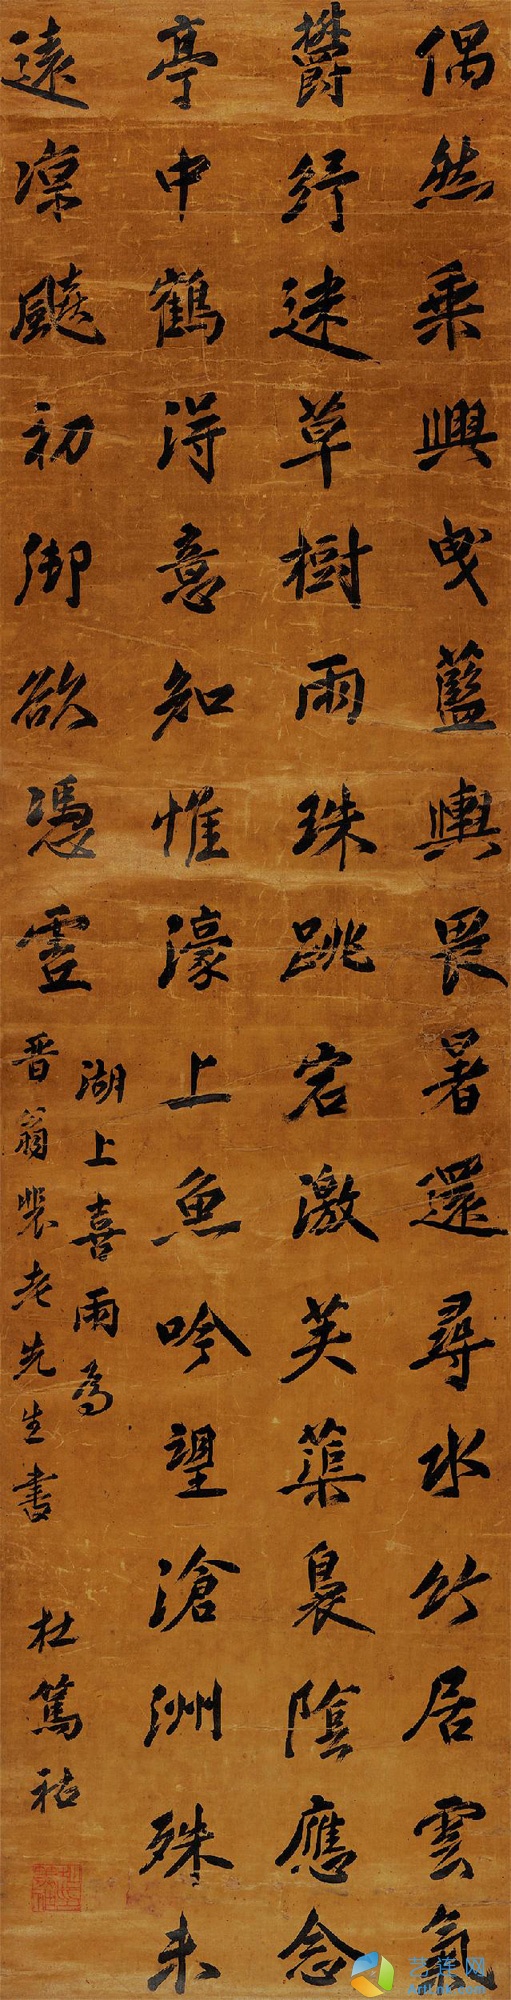 偶然乘興曳藍輿畏暑還尋水竹居雲氣
欝紆迷草樹雨珠跳宕激芙蕖裊陰應念
亭中鶴得意知惟濠上魚吟望滄洲殊未
遠凉飇初御欲憑虛
湖上喜雨為
晋翁裴老先生書 杜篤祜
艺连网